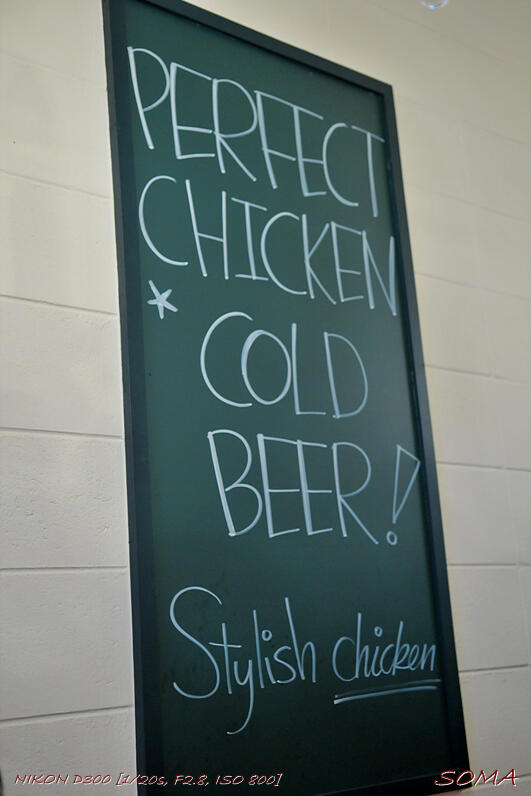 PERFECT
CHICKEN
* COLD
BEER!
Stylish chicken
NIKON D300 [1/20s, F2.8, ISO 800]
SOMA